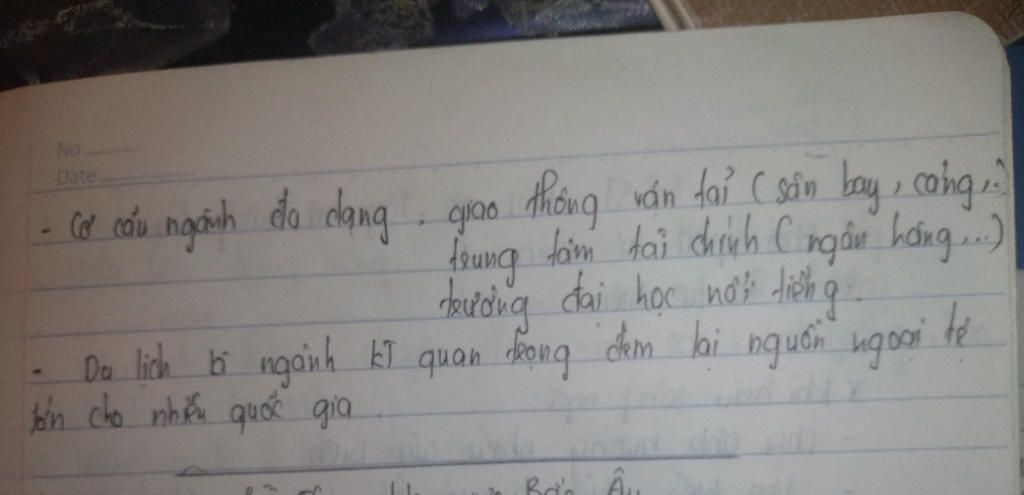 No
Date
- Cơ cấu ngành đa dạng : giao thông vận tải (sân bay, cảng,..)
trung tâm tài chính (ngân hàng,...)
trường đại học nổi tiếng.
- Du lịch là ngành KT quan trọng đem lại nguồn ngoại tệ
lớn cho nhiều quốc gia.
Bắc Âu